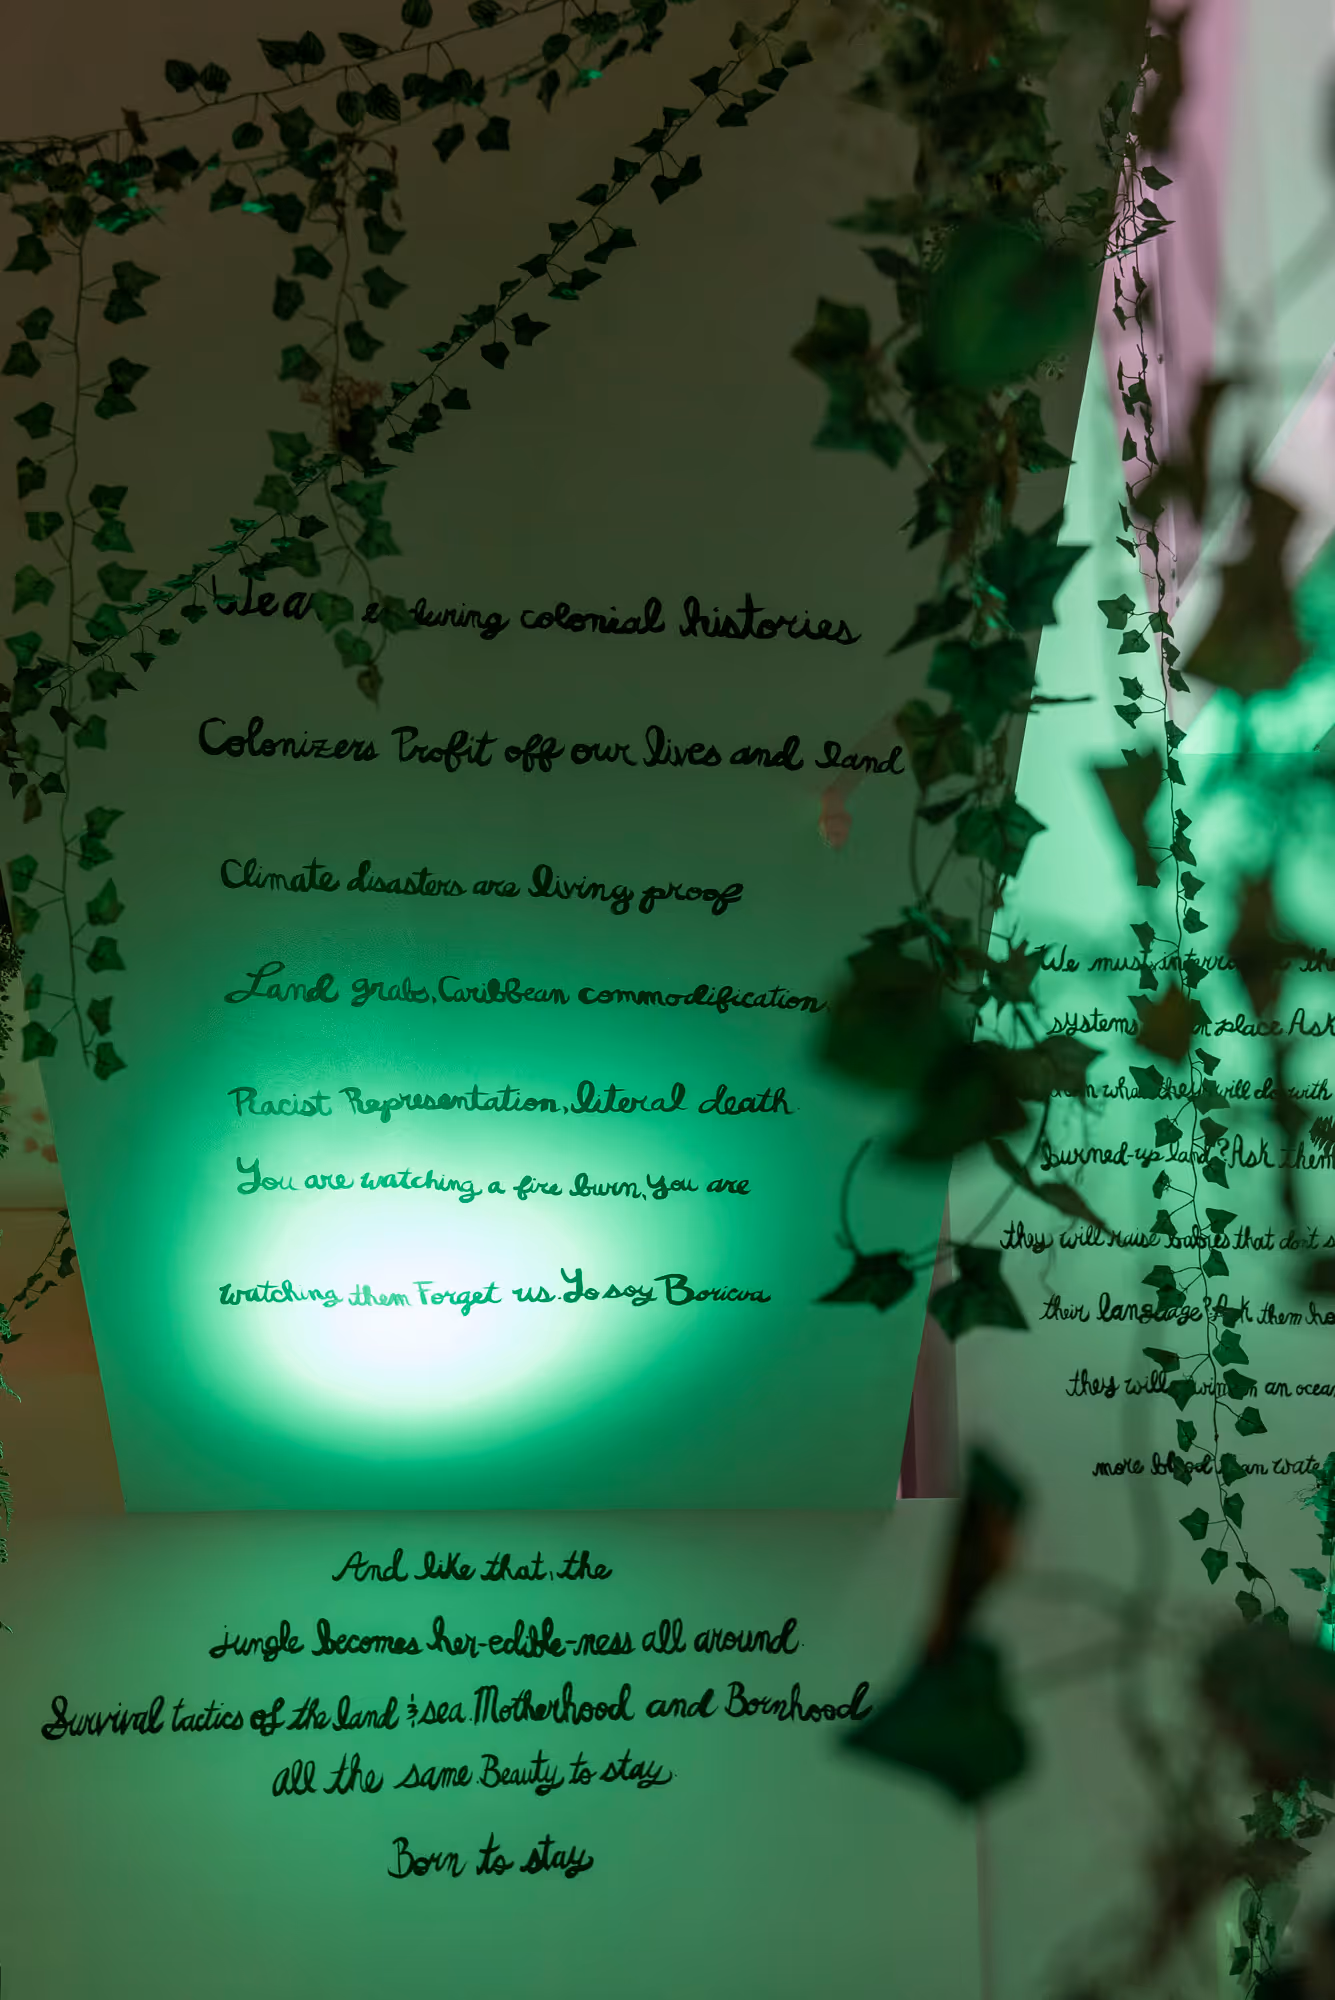 We are enduring colonial histories
Colonizers Profit off our lives and land
Climate disasters are living proof
Land grabs, Caribbean commodification.
Racist Representation, literal death.
You are watching a fire burn, you are
watching them Forget us. Yo soy Boricua
And like that, the
jungle becomes her-edible-ness all around.
Survival tactics of the land & sea. Motherhood and Bornhood
all the same. Beauty to stay.
Born to stay
We must the
systems place Ask
what they will do with
burned-up land? Ask them
they will raise babies that don't
their language? Ask them
they will an
more blood than